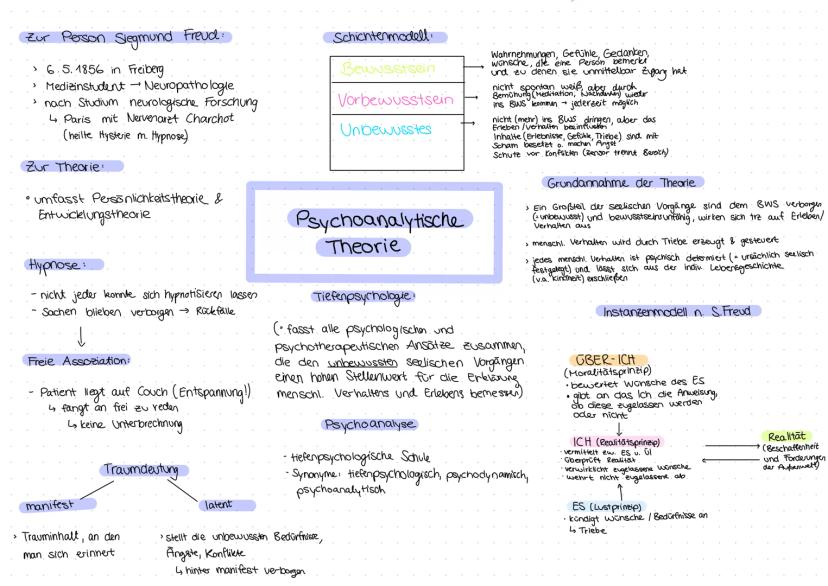 Zur Person Siegmund Freud:
› 6.5.1856 in Freiberg
› Medizinstudent → Neuropathologie
› nach Studium neurologische Forschung
↳ Paris mit Nervenarzt Charchot
(heilte Hysterie m. Hypnose)
Zur Theorie:
• umfasst Persönlichkeitstheorie &
Entwicklungstheorie
Hypnose:
- nicht jeder konnte sich hypnotisieren lassen
- Sachen blieben verborgen → Rückfälle
Freie Assoziation:
- Patient liegt auf Couch (Entspannung!)
↳ fängt an frei zu reden
↳ keine Unterbrechnung
Traumdeutung
manifest
› Trauminhalt, an den
man sich erinnert
latent
› stellt die unbewussten Bedürfnisse,
Ängste, Konflikte
↳ hinter manifest verborgen
Schichtenmodell:
Bewusstsein
Vorbewusstsein
Unbewusstes
Wahrnehmungen, Gefühle, Gedanken,
Wünsche, die eine Person bemerkt
und zu denen sie unmittelbar Zugang hat
nicht spontan weiß, aber durch
Bemühung (Meditation, Nachdenken) wieder
ins BWS kommen → jederzeit möglich
nicht (mehr) ins BWS dringen, aber das
Erleben/Verhalten beeinflussen
Inhalte (Erlebnisse, Gefühle, Triebe) sind mit
Scham besetzt o. machen Angst
Schutz vor Konflikten (Zensor trennt Bereich)
Psychoanalytische
Theorie
Tiefenpsychologie:
(• fasst alle psychologischen und
psychotherapeutischen Ansätze zusammen,
die den unbewussten seelischen Vorgängen
einen hohen Stellenwert für die Erklärung
menschl. Verhaltens und Erlebens bemessen)
Psychoanalyse
- tiefenpsychologische Schule
- Synonyme: tiefenpsychologisch, psychodynamisch,
psychoanalytisch
Grundannahme der Theorie
› Ein Großteil der seelischen Vorgänge sind dem BWS verborgen
(=unbewusst) und bewusstseinsunfähig, wirken sich trz auf Erleben/
Verhalten aus
› menschl. Verhalten wird durch Triebe erzeugt & gesteuert
› jedes menschl. Verhalten ist psychisch determiniert (= ursächlich seelisch
festgelegt) und lässt sich aus der indiv. Lebensgeschichte
(v.a. Kindheit) erschließen
Instanzenmodell n. S.Freud
ÜBER-ICH
(Moralitätsprinzip)
• bewertet Wünsche des ES
• gibt an das Ich die Anweisung,
ob diese zugelassen werden
oder nicht
ICH (Realitätsprinzip)
• vermittelt zw. ES u. ÜI
• Überprüft Realität
• verwirklicht zugelassene Wünsche
• wehrt nicht zugelassene ab
Realität
(Beschaffenheit
und Forderungen
der Außenwelt)
ES (Lustprinzip)
• kündigt Wünsche / Bedürfnisse an
↳ Triebe